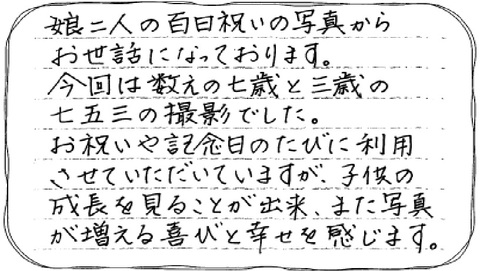 娘二人の百日祝いの写真から
お世話になっております。
今回は数えの七歳と三歳の
七五三の撮影でした。
お祝いや記念日のたびに利用
させていただいていますが、子供の
成長を見ることが出来、また写真
が増える喜びと幸せを感じます。